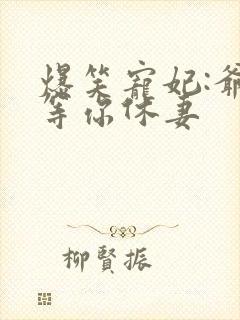 爆笑宠妃:爺
等你休妻
柳賢振